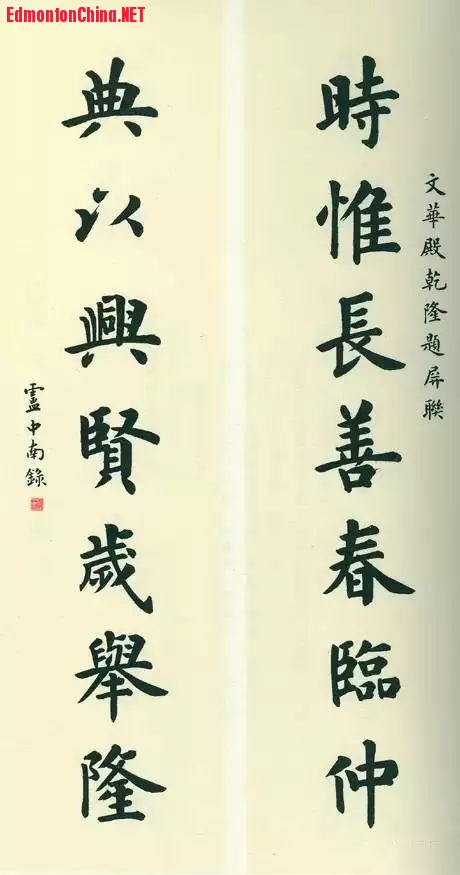 EdmontonChina.NET
文華殿乾隆題屏聯
時惟長善春臨仲
典以興賢歲舉隆
盧中南錄